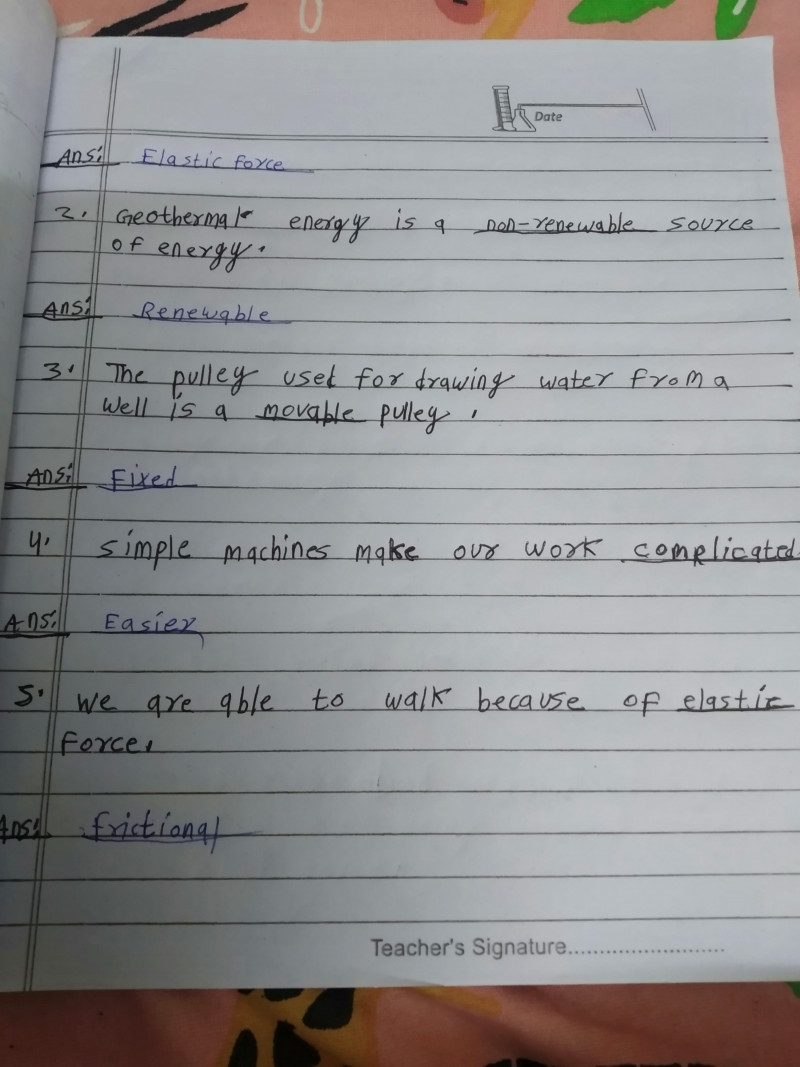 Date
Ans: Elastic force
2. Geothermal energy is a non-renewable source
of energy.
Ans: Renewable
3. The pulley used for drawing water from a
well is a movable pulley.
Ans: Fixed
4. simple machines make our work complicated.
Ans: Easier
5. we are able to walk because of elastic
force.
Ans: frictional
Teacher's Signature..........................